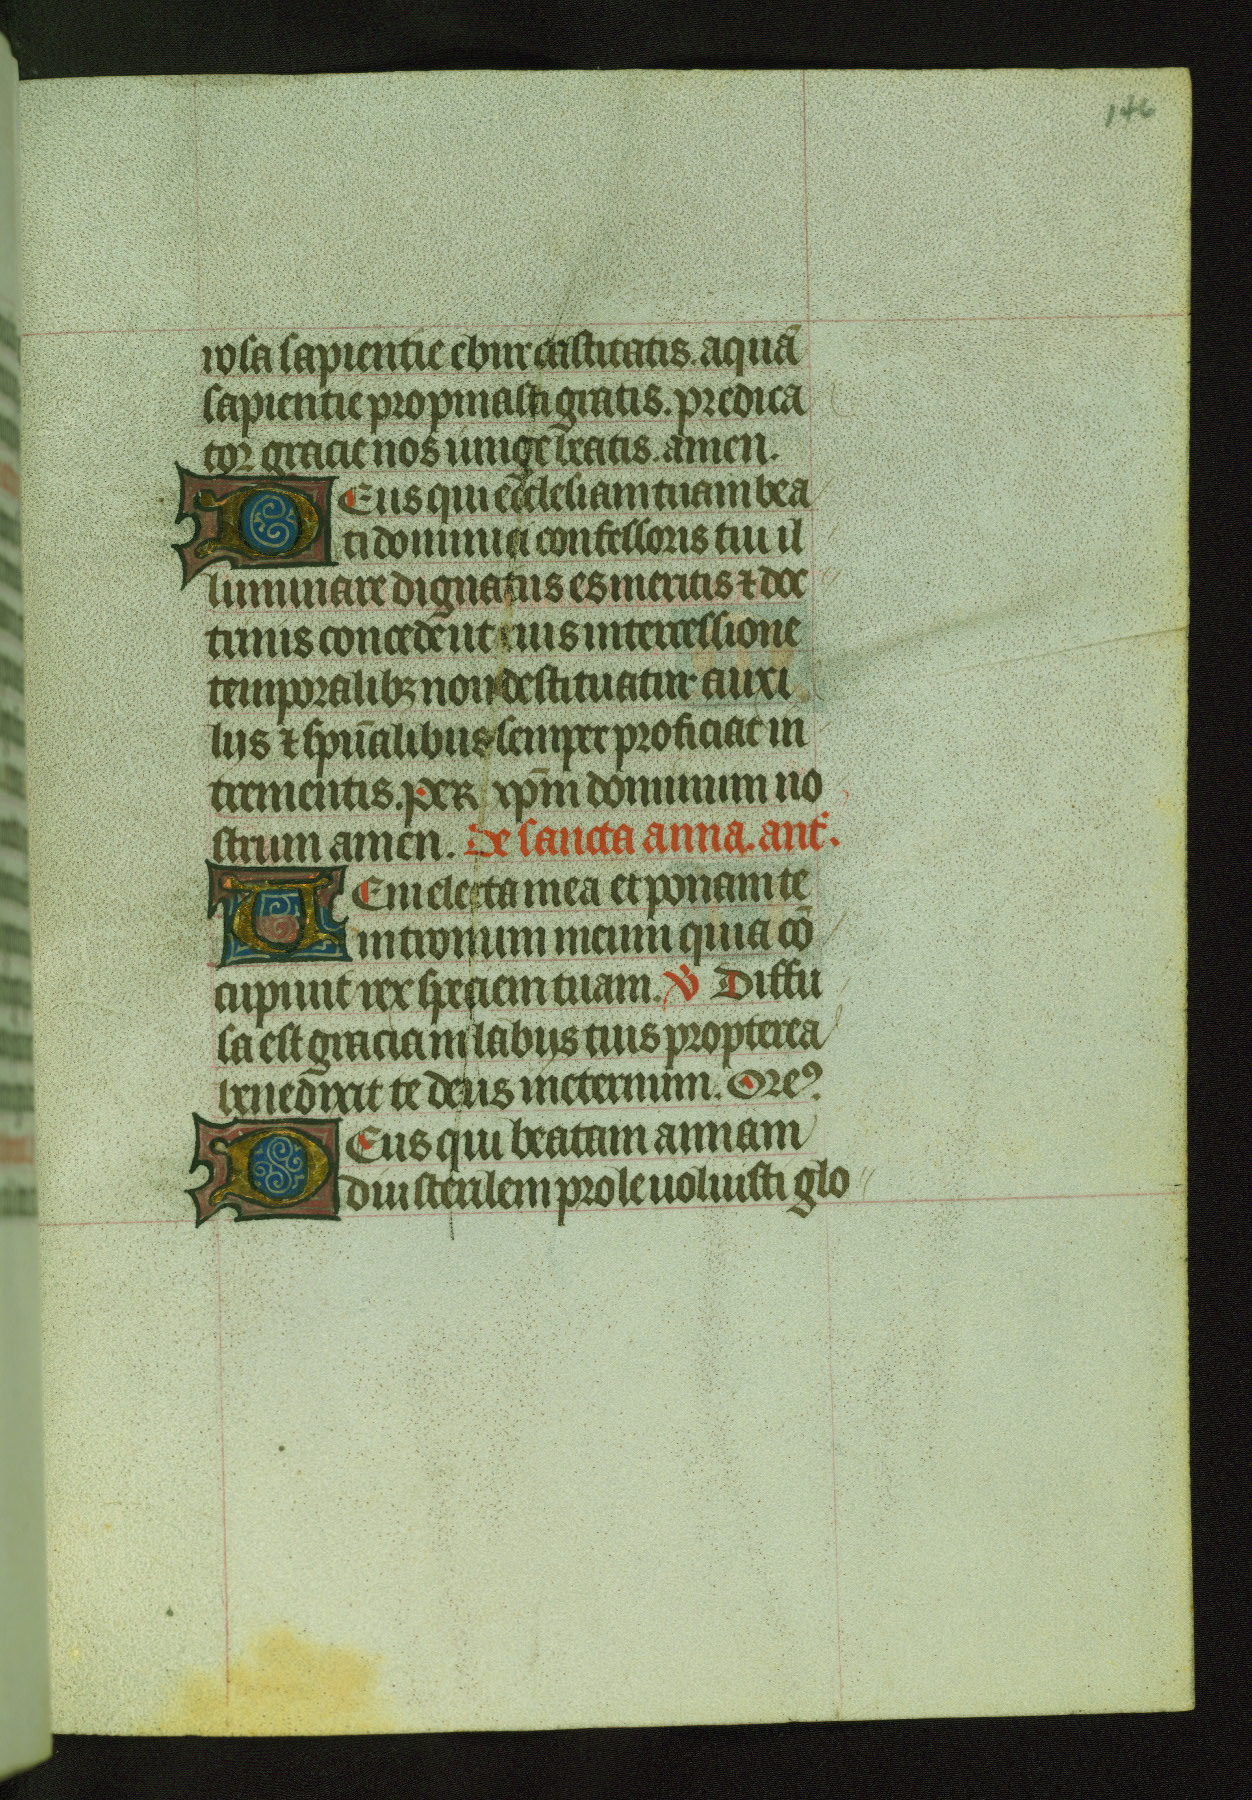 146
rosa sapientie ebur castitatis. aquā
sapientie propinasti gratis. predica
toꝛ gracie nos iunge beatis. amen.
Deus qui ecclesiam tuam bea
ti dominici confessoris tui il
luminare dignatus es meritis ⁊ doc
trinis concede ut eius intercessione
temporalibꝫ non destituatur auxi
liis ⁊ spūalibus semper proficiat in
crementis. per xp̄m dominum no
strum amen. De sancta anna. ant̄.
Ueni electa mea et ponam te
in tronum meum quia cō
cupiuit rex speciem tuam. ℣ Diffu
sa est gracia in labiis tuis propterea
benedixit te deus in eternum. Oreꝰ
Deus qui beatam annam
diu sterilem prole uoluisti glo